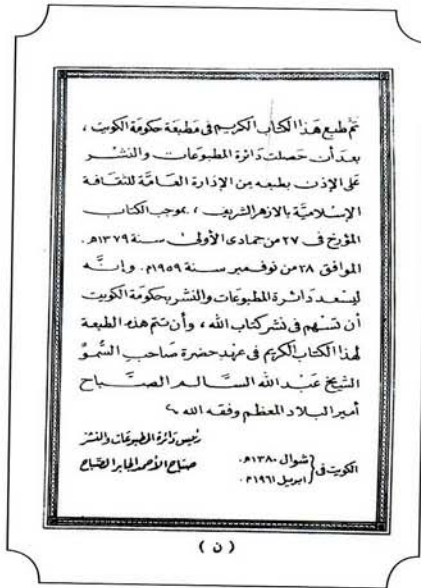 تم طبع هذا الكتاب الكريم فى مطبعة حكومة الكويت ،
بعد أن حصلت دائرة المطبوعات والنشر
على الإذن بطبعه من الإدارة العامة للثقافة
الإسلامية بالازهر الشريف ، بموجب الكتاب
المؤرخ فى ٢٧ من جمادى الأولى سنة ١٣٧٩هـ.
الموافق ٢٨ من نوفمبر سنة ١٩٥٩م. وإنَّه
ليسعد دائرة المطبوعات والنشر بحكومة الكويت
أن تسهم فى نشر كتاب الله ، وأن تتم هذه الطبعة
لهذا الكتاب الكريم فى عهد حضرة صاحب السُّموِّ
الشيخ عبد الله السالم الصباح
أمير البلاد المعظم وفقه الله
رئيس دائرة المطبوعات والنشر
صباح الأحمد الجابر الصباح
الكويت فى { شوال ١٣٨٠هـ.
ابريل ١٩٦١م.
( ن )